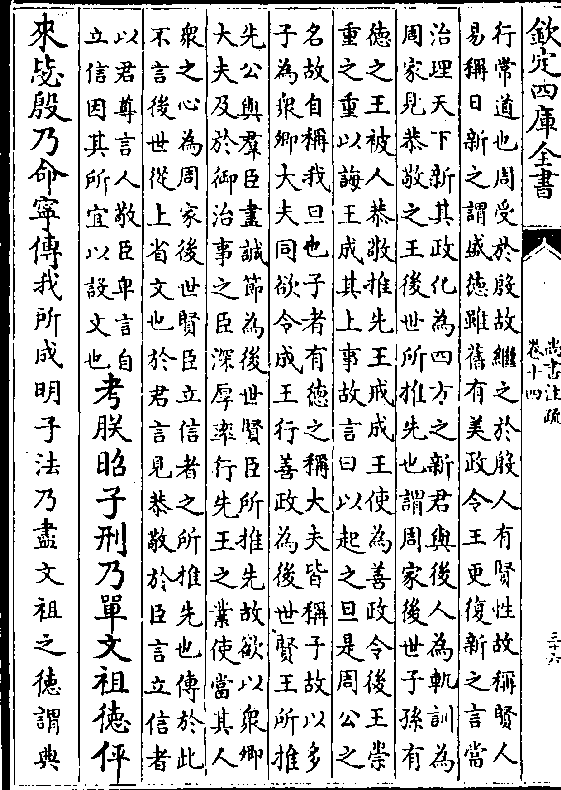 欽定四庫全書
尚書注疏
卷十四
三十六
行常道也周受於殷故繼之於殷人有賢性故稱賢人
易稱日新之謂盛德雖舊有美政令王更復新之言當
治理天下新其政化為四方之新君與後人為軌訓為
周家見恭敬之王後世所推先也謂周家後世子孫有
德之王被人恭敬推先王戒成王使為善政令後王崇
重之重以誨王成其上事故言曰以起之旦是周公之
名故自稱我旦也子者有德之稱大夫皆稱子故以多
子為衆卿大夫同欲令成王行善政為後世賢王所推
先公與羣臣盡誠節為後世賢臣所推先故欲以衆卿
大夫及於御治事之臣深厚率行先王之業使當其人
衆之心為周家後世賢臣立信者之所推先也傳於此
不言後世從上省文也於君言見恭敬於臣言立信者
以君尊言人敬臣卑言自
立信因其所宜以設文也
考朕昭子刑乃單文祖德伻
來毖殷乃命寧傳我所成明子法乃盡文祖之德謂典